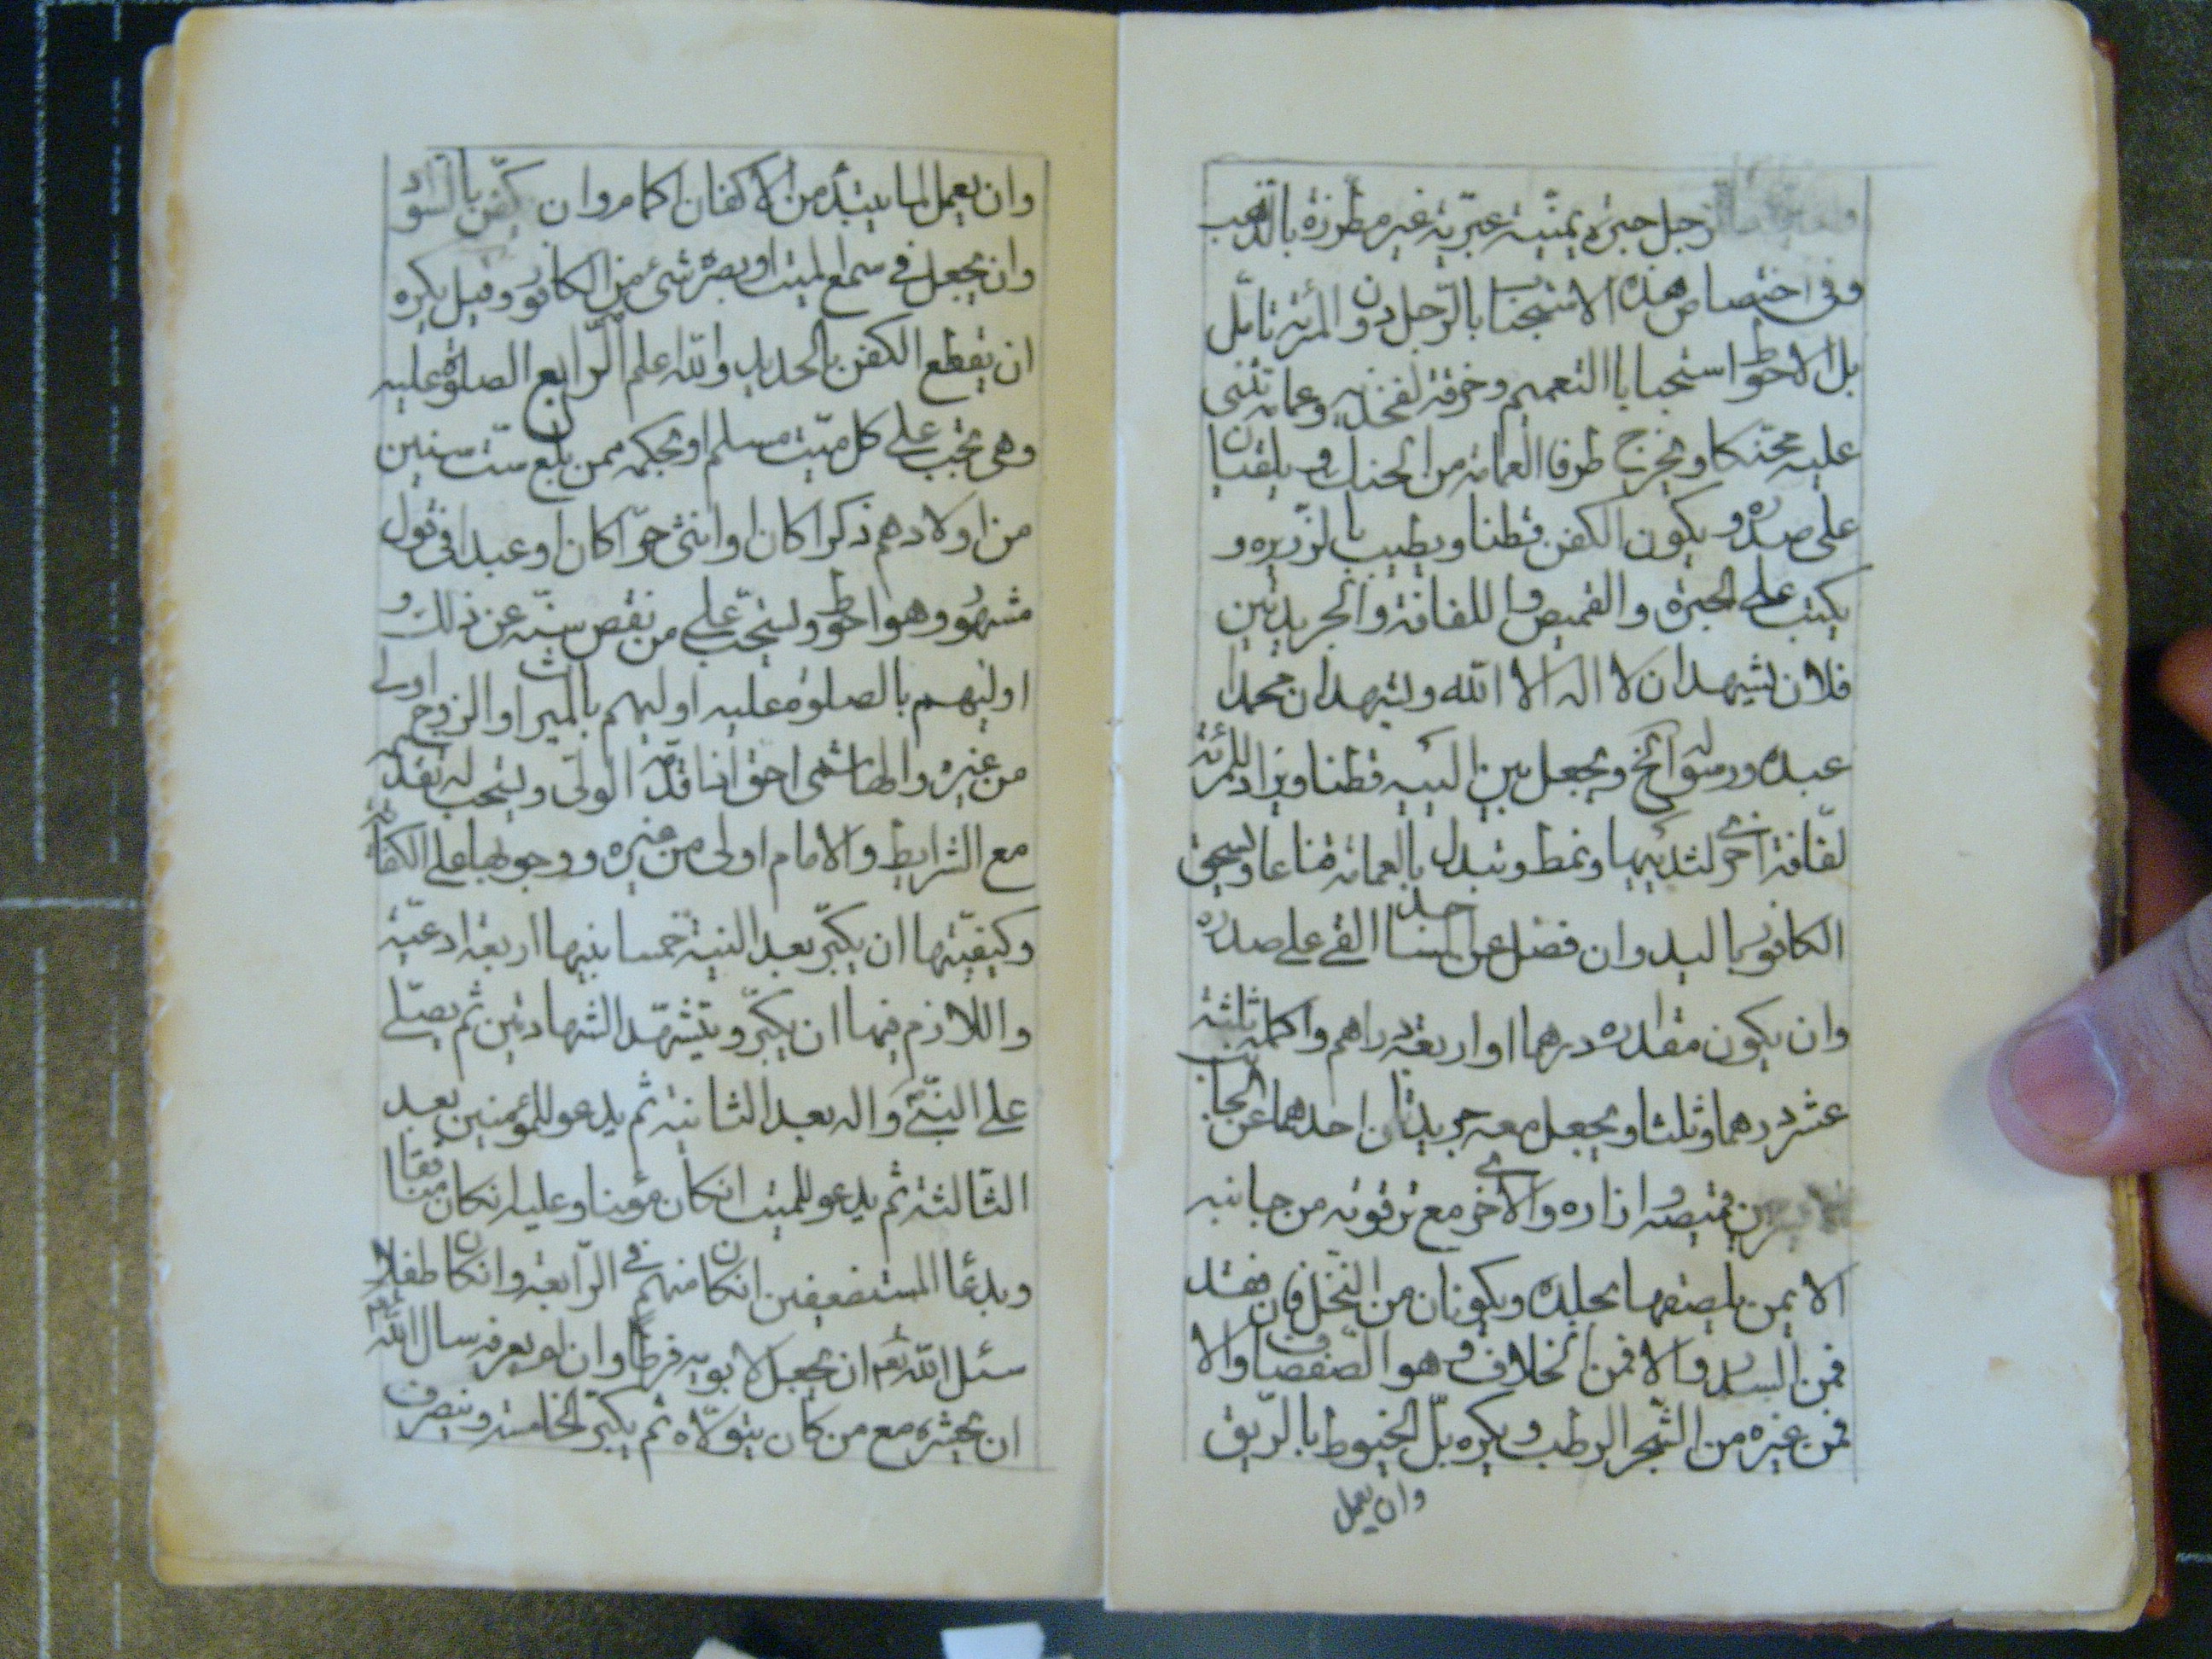 رجل حبرة يمنية عبرية غير مطرزة بالذهب
وفى اختصاص هذه الاستحباب بالرجل دون المرئة تامل
بل الاحوط استحبابا التعميم وخرقة لفخذيه وعمامة تثنى
عليه محنكا ويخرج طرفا العمامة من الحنك و يلقيان
على صدره و يكون الكفن قطنا ويطيب بالزريره و
يكتب على الحبرة والقميص و اللفافة والجريدتين
فلان يشهد ان لا اله الا الله ويشهد ان محمدا
عبده ورسوله الخ ويجعل بين اليتيه قطنا ويزاد للمرئة
لفافة اخرى لثدييها ونمط وتبدل بالعمامة قناعا ويسحق
الكافور باليد وان فضل عن المساجد القى على صدره
وان يكون مقداره درهما او اربعة دراهم واكمله ثلثة
عشر درهما وثلثا ويجعل معه جريدتان احدهما عن الجانب
قميصه و ازاره والاخرى مع ترقوته من جانبه
الايمن يلصقها بجلده ويكونان من النخل فان فقد
فمن السدر والا فمن الخلاف و هو الصفصاف والا
فمن غيره من الشجر الرطب و يكره بل الخيوط بالريق
وان يعمل
وان يعمل لما يبتدء من الاكفان اكمام وان يكفن بالسود
وان يجعل فى سمع الميت او بصره شئ من الكافور وقيل يكره
ان يقطع الكفن بالحديد والله اعلم الرابع الصلوة عليه
وهى تجب على كل ميت مسلم او بحكمه ممن بلغ ست سنين
من اولادهم ذكرا كان او انثى حرا كان او عبدا فى قول
مشهور وهو احوط ويستحب على من نقص سنه عن ذلك و
اوليهم بالصلوة عليه اوليهم بالميراث والزوج اولى
من غيره والهاشمى احق اذا قدمه الولى ويستحب له تقديمه
مع الشرايط والامام اولى من غيره ووجوبها على الكفاية
وكيفيتها ان يكبر بعد النية خمسا بينها اربعة ادعية
واللازم فيها ان يكبر و يتشهد الشهادتين ثم يصلى
على النبى واله بعد الثانية ثم يدعو للمؤمنين بعد
الثالثة ثم يدعو للميت انكان مؤمنا وعليه انكان منافقا
وبدعا المستضعفين انكان منهم فى الرابعة وانكان طفلا
سئل الله تعم ان يجعل لابويه فرطا وان لم يعرفه سال الله تعم
ان يحشره مع من كان يتولاه ثم يكبر الخامسة وينصرف